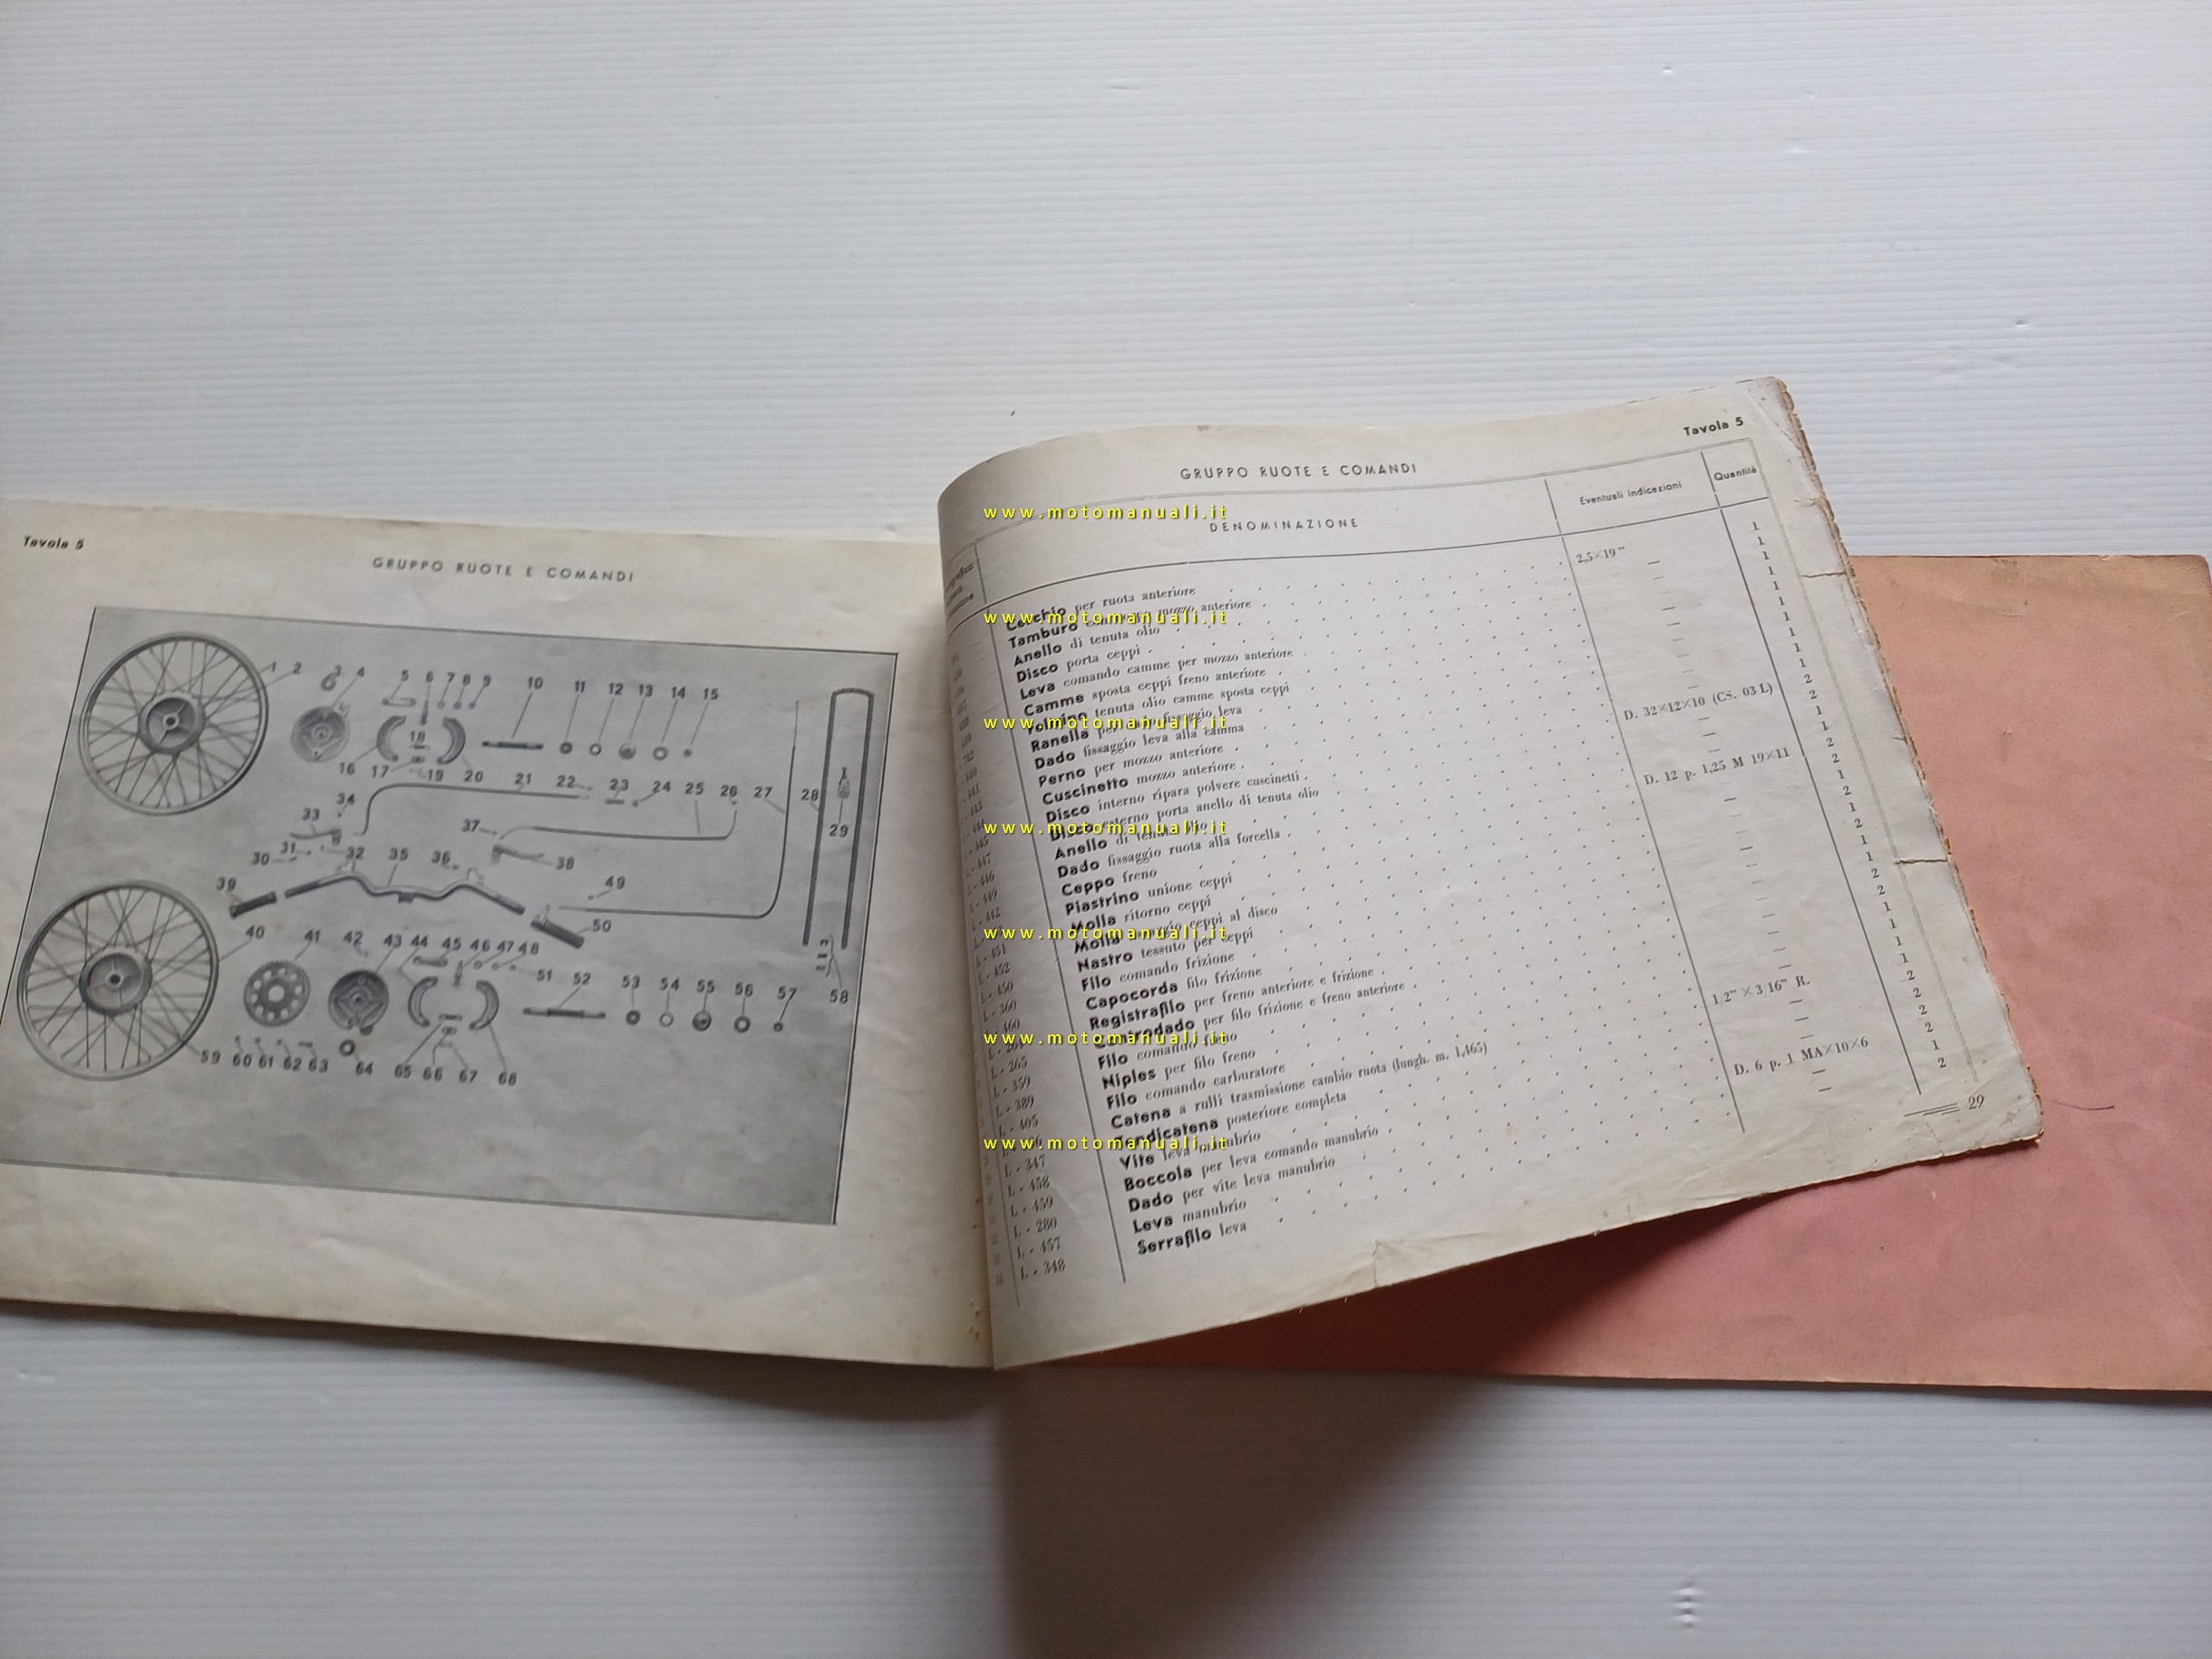 Tavola 5
GRUPPO RUOTE E COMANDI
1 2 3 4 5 6 7 8 9 10 11 12 13 14 15
16 17 18 19 20 21 22 23 24 25 26 27 28 29
30 31 32 33 34 35 36 37 38
39 40 41 42 43 44 45 46 47 48 49 50
51 52 53 54 55 56 57 58
59 60 61 62 63 64 65 66 67 68
Tavola 5
GRUPPO RUOTE E COMANDI
DENOMINAZIONE
Eventuali indicazioni
Quantità
Cerchio per ruota anteriore 2,5×19" 1
Tamburo mozzo anteriore — 1
Anello di tenuta olio
Disco porta ceppi
Leva comando camme per mozzo anteriore
Camme sposta ceppi freno anteriore
tenuta olio camme sposta ceppi
Ranella per fissaggio leva
Dado fissaggio leva alla camma
Perno per mozzo anteriore
Cuscinetto mozzo anteriore D. 32×12×10 (CS. 03 L)
Disco interno ripara polvere cuscinetti
Disco esterno porta anello di tenuta olio
Anello di tenuta olio
Dado fissaggio ruota alla forcella D. 12 p. 1,25 M 19×11
Ceppo freno
Piastrino unione ceppi
Molla ritorno ceppi
Molla ceppi al disco
Nastro tessuto per ceppi
Filo comando frizione
Capocorda filo frizione
Registrafilo per freno anteriore e frizione
Controdado per filo frizione e freno anteriore
Filo comando freno
Niples per filo freno
Filo comando carburatore
Catena a rulli trasmissione cambio ruota (lungh. m. 1,465) 1/2" × 3/16" R.
Tendicatena posteriore completa
Vite leva manubrio D. 6 p. 1 MA×10×6
L - 347
Boccola per leva comando manubrio
L - 458
Dado per vite leva manubrio
L - 459
L - 280
Leva manubrio
L - 457
Serrafilo leva
L - 348
29
www.motomanuali.it
www.motomanuali.it
www.motomanuali.it
www.motomanuali.it
www.motomanuali.it
www.motomanuali.it
www.motomanuali.it